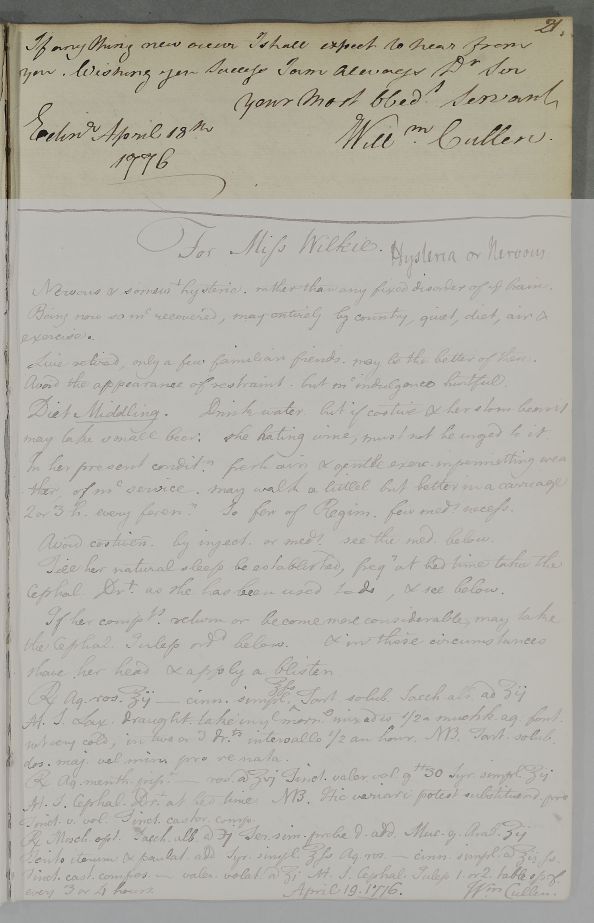 21.
If any thing new occur I shall expect to hear from
you. Wishing you Success I am always Dr Sir
your most obedt. Servant
Edinr. April 18th Willm Cullen.
1776
For Miss Wilkie. Hysteria or Nervous
Nervous & somewt hysteric. rather than any fixed disorder of ye brain.
Being now so mh recovered, may entirely by country, quiet, diet, air &
exercise.
Live retired, only a few familiar friends. may be the better of them.
Avoid the appearance of restraint. but mh indulgence hurtful.
Diet Middling. Drink water. but if costive & her stom bears it
may take small beer. she hating wine, must not be urged to it.
In her present condit. fresh air & gentle exerc. in permitting wea
ther, of mh service. may walk a little but better in a carriage
2 or 3 h. every foren. So far of Regim. few med. necess.
Avoid costiven. by inject. or med. see the med. below.
Till her natural sleep be established, freq. at bed time take the
Cephal. Drt. as she has been used to do, & see below.
If her compts. return or become more considerable, may take
the Cephal. Julep ord below. & in those circumstances
shave her head & apply a blister.
℞ Aq. ros. ʒij — cinn. simpl. ʒſs Tart. solub. Sacch. alb. a ʒij
M. S. Lax. draught. take in ye morng mixed in 1/2 a mutchk. aq. font.
not very cold, in two or 3 drts interval o 1/2 an hour. NB. Tart. solub.
dos. maj. vel min. pro re nata.
℞ Aq. menth. pip. — ros. a ʒvj Tinct. valer. vol. gtt 30 Syr. simpl. ʒij
M. S. Cephal. Drt. at bed time. NB. Hic variari potest substituend. pro
Tinct. v. vol. Tinct. castor. comp.
℞ Mosch. opt. Sacch. alb. a Ter. sim. probe d. add. Muc. g. Arab. ʒij
Terito iterum & paulat. add Syr. simpl. ʒſs Aq. ros. — cinn. simpl. a
Tinct. cast. compos. — valer. volat. a ʒj M. S. Cephal. Julep 1. or 2. table sp.
every 3 or 4 hours. April 19. 1776. Wm Cullen.